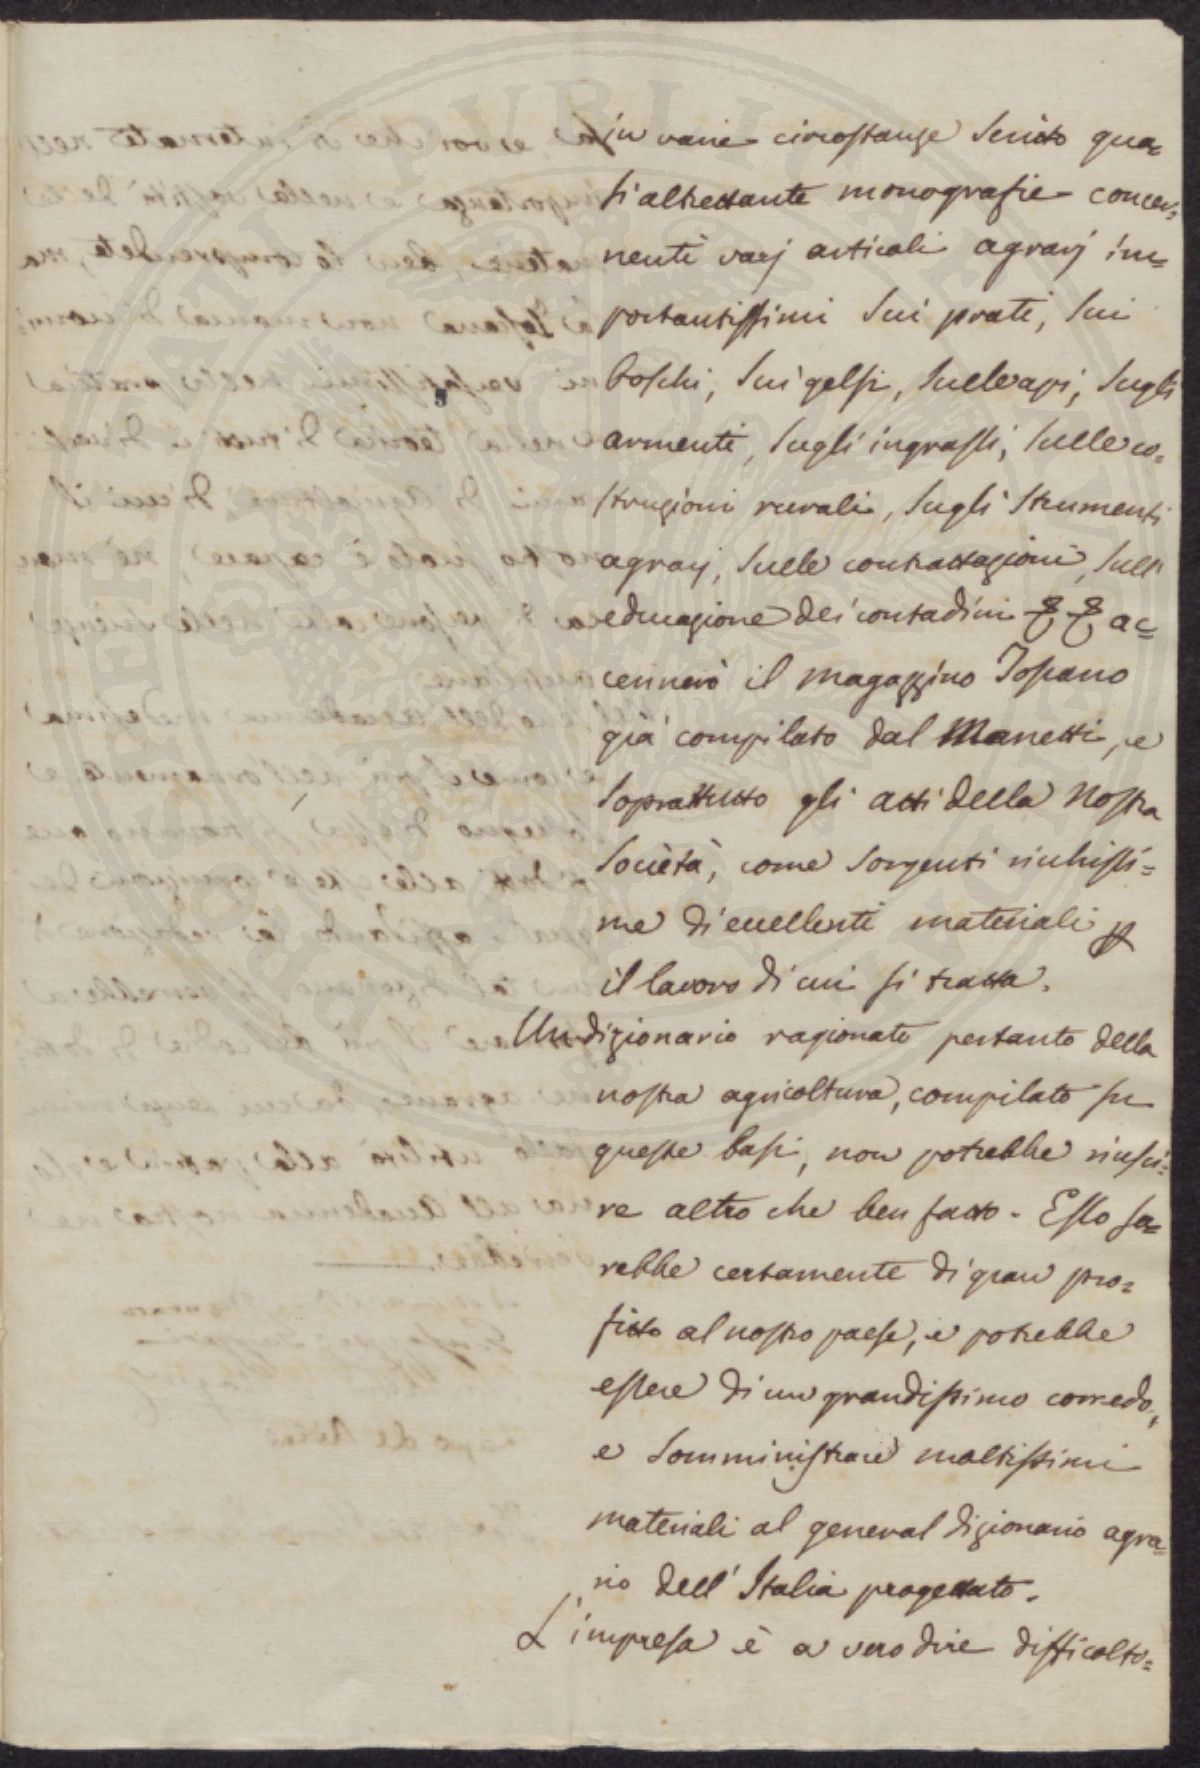 in varie circostanze scritto qua=
si altrettante monografie concer=
nenti varj articoli agrarj im=
portantissimi sui prati, sui
boschi, sui gelsi, sulle api, sugli
armenti, sugli ingrassi, sulle co=
struzioni rurali, sugli strumenti
agrarj, sulle contrattazioni, sull'
educazione dei contadini &c &c ac=
cennerò il magazzino Toscano
già compilato dal Manetti, e
soprattutto gli atti della nostra
Società, come sorgenti richissi=
me di eccellenti materiali p
il lavoro di cui si tratta.
Un dizionario ragionato pertanto della
nostra agricoltura, compilato su
queste basi, non potrebbe riusci=
re altro che ben fatto. Esso sa=
rebbe certamente di gran pro=
fitto al nostro paese, e potrebbe
essere di un grandissimo corredo,
e somministrare moltissimi
materiali al general dizionario agra=
rio dell'Italia progettato.
L'impresa è a vero dire difficolto=